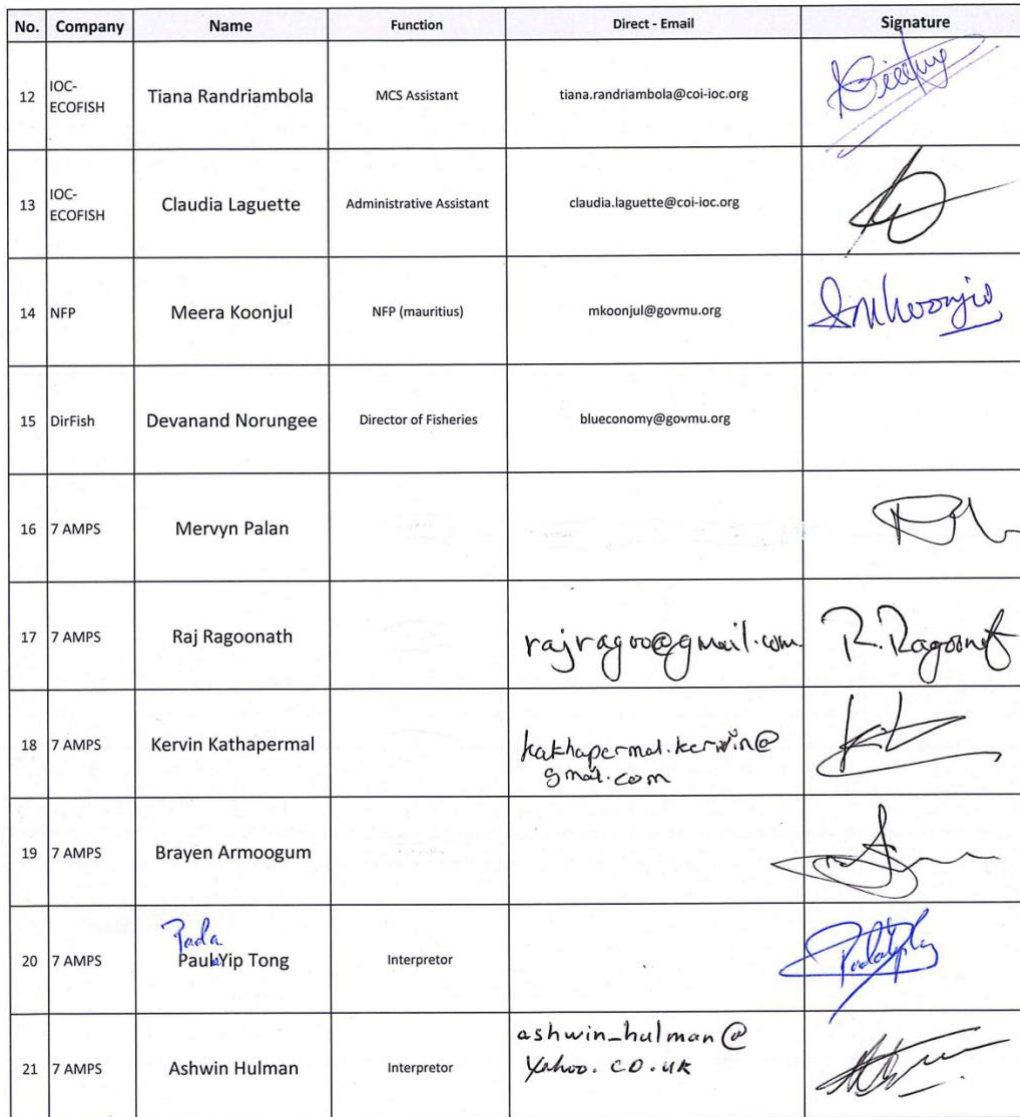 No. Company Name Function Direct - Email Signature
12 IOC-ECOFISH Tiana Randriambola MCS Assistant tiana.randriambola@coi-ioc.org
13 IOC-ECOFISH Claudia Laguette Administrative Assistant claudia.laguette@coi-ioc.org
14 NFP Meera Koonjul NFP (mauritius) mkoonjul@govmu.org
15 DirFish Devanand Norungee Director of Fisheries blueconomy@govmu.org
16 7 AMPS Mervyn Palan
17 7 AMPS Raj Ragoonath rajragoo@gmail.com R.Ragoonat
18 7 AMPS Kervin Kathapermal kathapermal.kervin@
gmail.com
19 7 AMPS Brayen Armoogum
20 7 AMPS Paul Yip Tong Interpretor
21 7 AMPS Ashwin Hulman Interpretor ashwin_hulman@
yahoo.co.uk